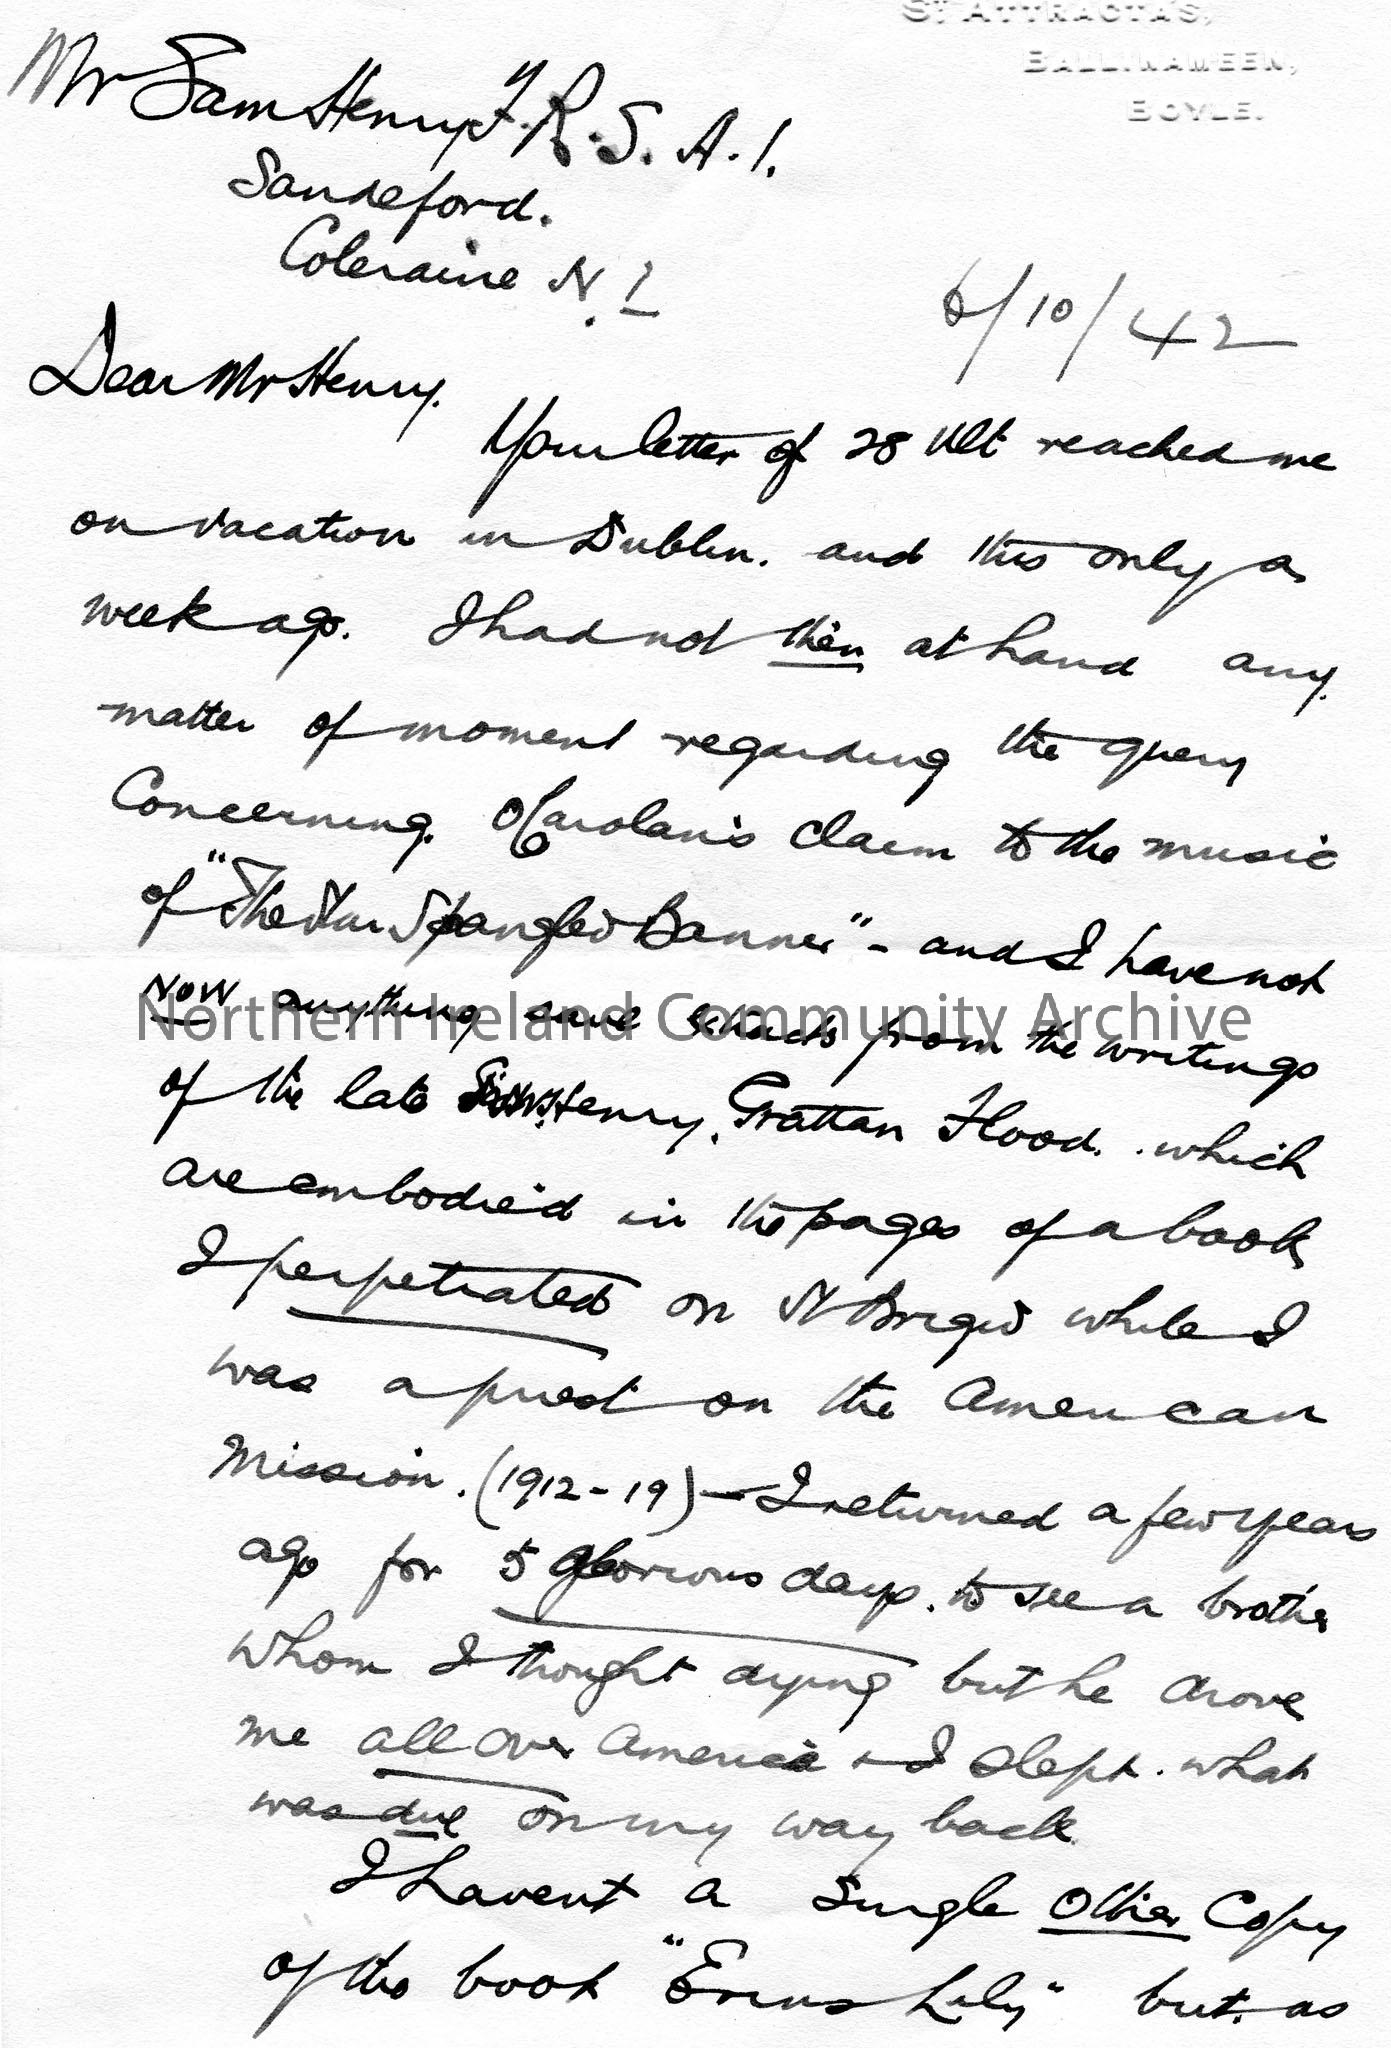 St ATTRACTA'S,
BALLINAMEEN,
BOYLE.
Mr Sam Henry F.R.S.A.I.
Sandeford.
Coleraine N.I
6/10/42
Dear Mr Henry.
Your letter of 28 Ult reached me
on vacation in Dublin. and this only a
week ago. I had not then at hand any
matter of moment regarding the query
Concerning. O'Carolan's claim to the music
of "The Star Spangled Banner" - and I have not
NOW anything save from the writings
of the late Henry. Grattan Flood. which
are embodied in the pages of a book
I perpetrated on St Brigid while I
was a priest on the American
Mission. (1912-19) - I returned a few years
ago for 5 glorious days. to see a brother
whom I thought dying but he drove
me all over America & I slept. what
was due on my way back.
I havent a single other Copy
of the book "Erins Lily" but. as
Northern Ireland Community Archive